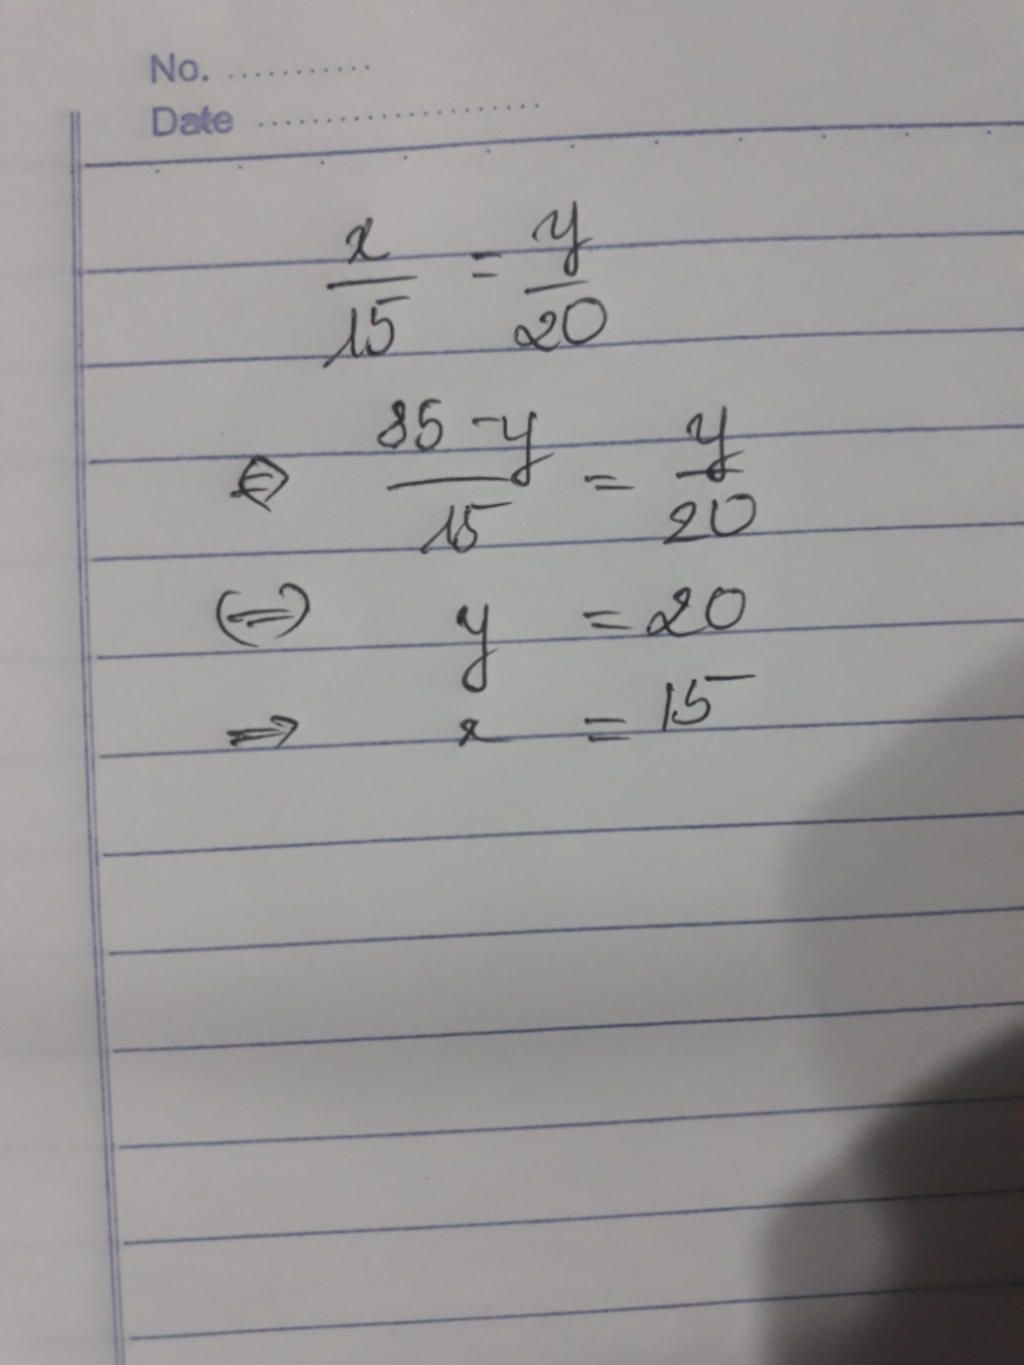 No. ............
Date ........................
x/15 = y/20
⇔ 35 - y/15 = y/20
⇔ y = 20
⇒ x = 15